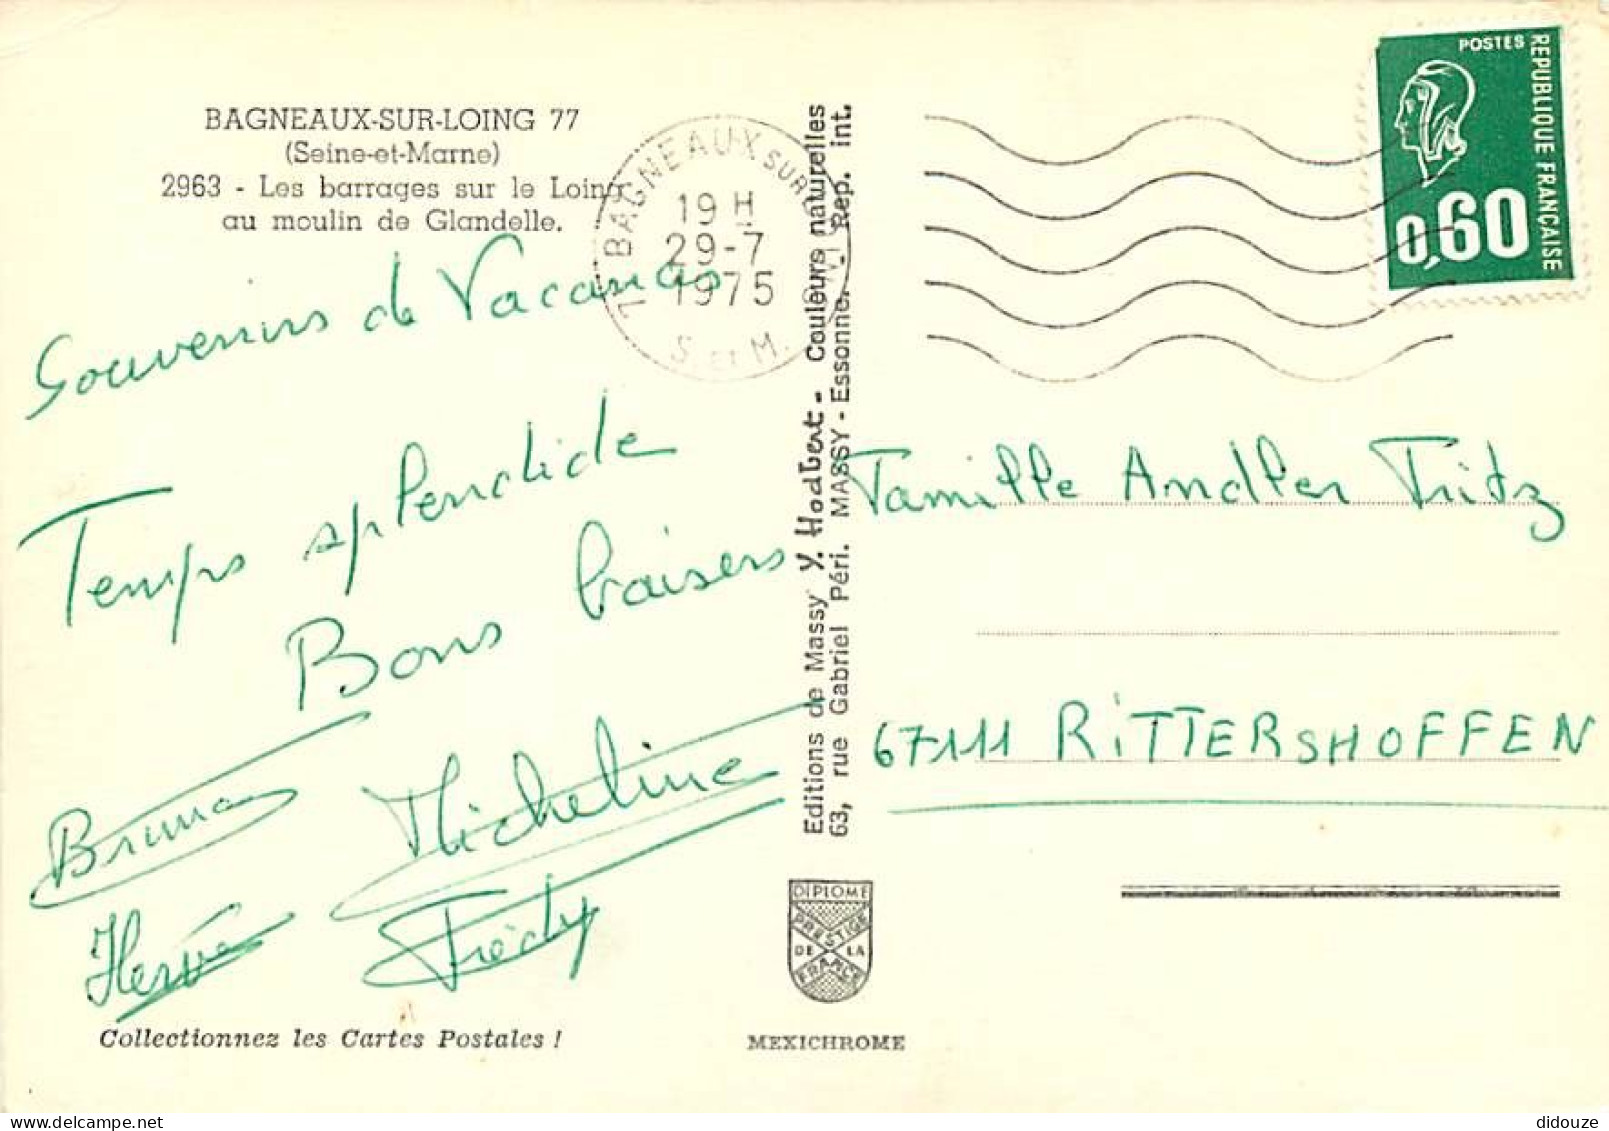 BAGNEAUX-SUR-LOING 77
(Seine-et-Marne)
2963 - Les barrages sur le Loing
au moulin de Glandelle.
Souvenirs de Vacances
Temps splendide
Bons baisers
Bruno Micheline
Hervé Frédy
Collectionnez les Cartes Postales !
77 BAGNEAUX SUR LOING
19 H
29-7
1975
S. ET M.
Editions de Massy Y. Hodbert - Couleurs naturelles
63, rue Gabriel Péri. MASSY - Essonne. - Rep. int.
DIPLOME
PRESTIGE
DE LA
FRANCE
MEXICHROME
POSTES
REPUBLIQUE FRANÇAISE
0,60
Famille Andler Fritz
67111 RiTTERSHOFFEN
delcampe.net
didouze